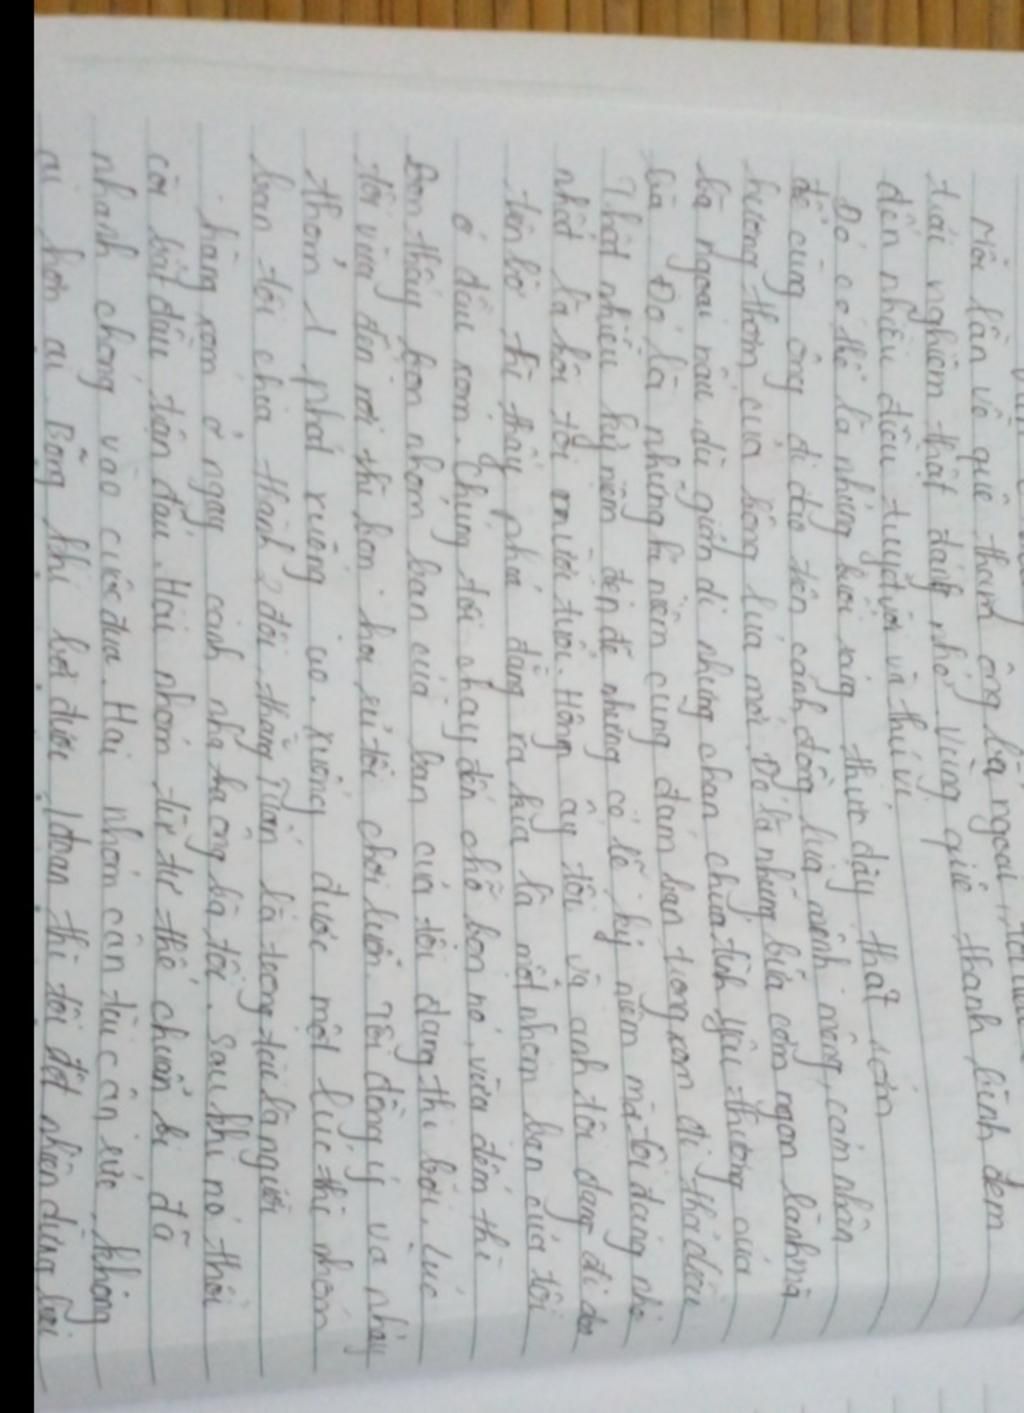 Mỗi lần về quê thăm ông bà ngoại
trải nghiệm thật đáng nhớ. Vùng quê thanh bình đem
đến nhiều điều tuyệt vời và thú vị
Đó có thể là những buổi sáng thức dậy thật sớm
để cùng ông đi dạo trên cánh đồng lúa mênh mông, cảm nhận
hương thơm của bông lúa mới. Đó là những bữa cơm ngon lành mà
bà ngoại nấu dù giản dị nhưng chan chứa tình yêu thương của
bà. Đó là những kỉ niệm cùng đám bạn trong xóm đi thả diều
Thật nhiều kỷ niệm đẹp đẽ nhưng có lẽ kỷ niệm mà tôi đáng nhớ
nhất là hồi tôi mười tuổi. Hôm ấy tôi và anh tôi đang đi dạo
trên bờ thì thấy phía đằng xa kia là một nhóm bạn của tôi
ở đầu xóm. Chúng tôi chạy đến chỗ bọn nó, vừa đến thì
bọn thấy bọn nhóm bạn của bạn của tôi đang thi bơi. Lúc
tôi vừa đến nơi thì bọn hỏi rủ tôi chơi luôn. Tôi đồng ý và nhảy
thẳm 1 phát xuống ao. Xuống được một lúc thì nhóm
bạn tôi chia thành 2 đội, thằng Tuấn là trọng tài là người
hàng xóm ở ngay cạnh nhà ông bà tôi. Sau khi nó thổi
còi bắt đầu trận đấu. Hai nhóm từ tư thế chuẩn bị đã
nhanh chóng vào cuộc đua. Hai nhóm cân tài cân sức, không
ai hơn ai. Bỗng khi bơi được 1 đoạn thì tôi đột nhiên dừng lại